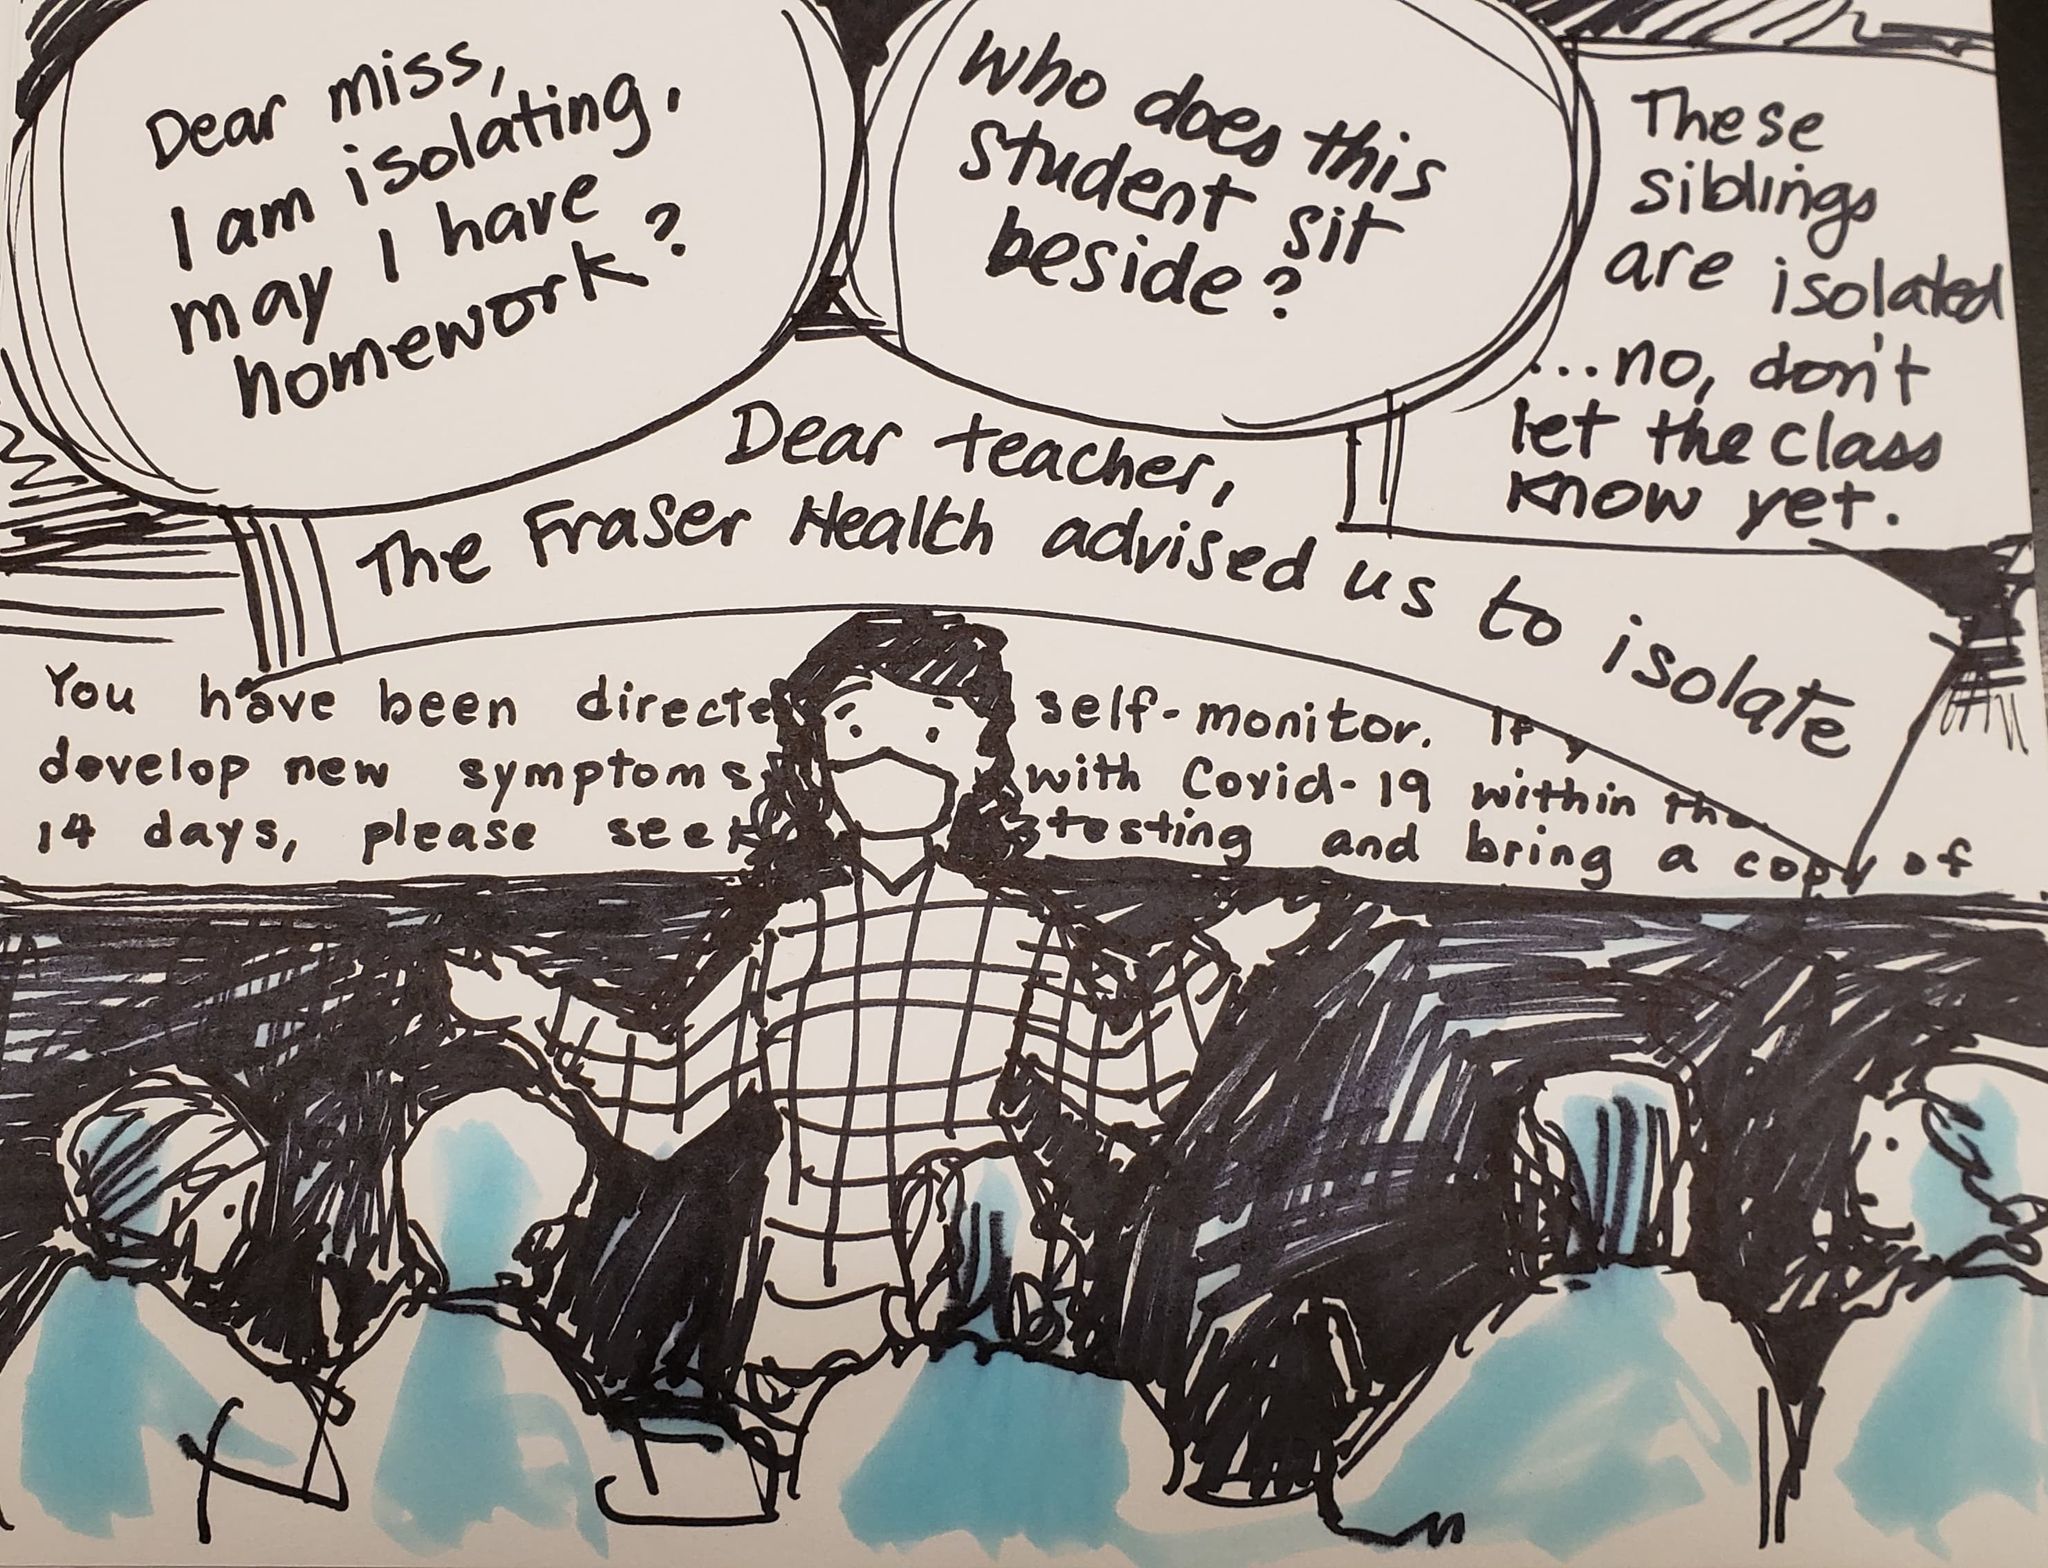 Dear miss,
I am isolating,
may I have
homework?
Who does this
student sit
beside?
These
siblings
are isolated
...no, don't
let the class
know yet.
Dear teacher,
The Fraser Health advised us to isolate
You have been directe self-monitor. If y
develop new symptoms with Covid-19 within the
14 days, please seek testing and bring a copy of